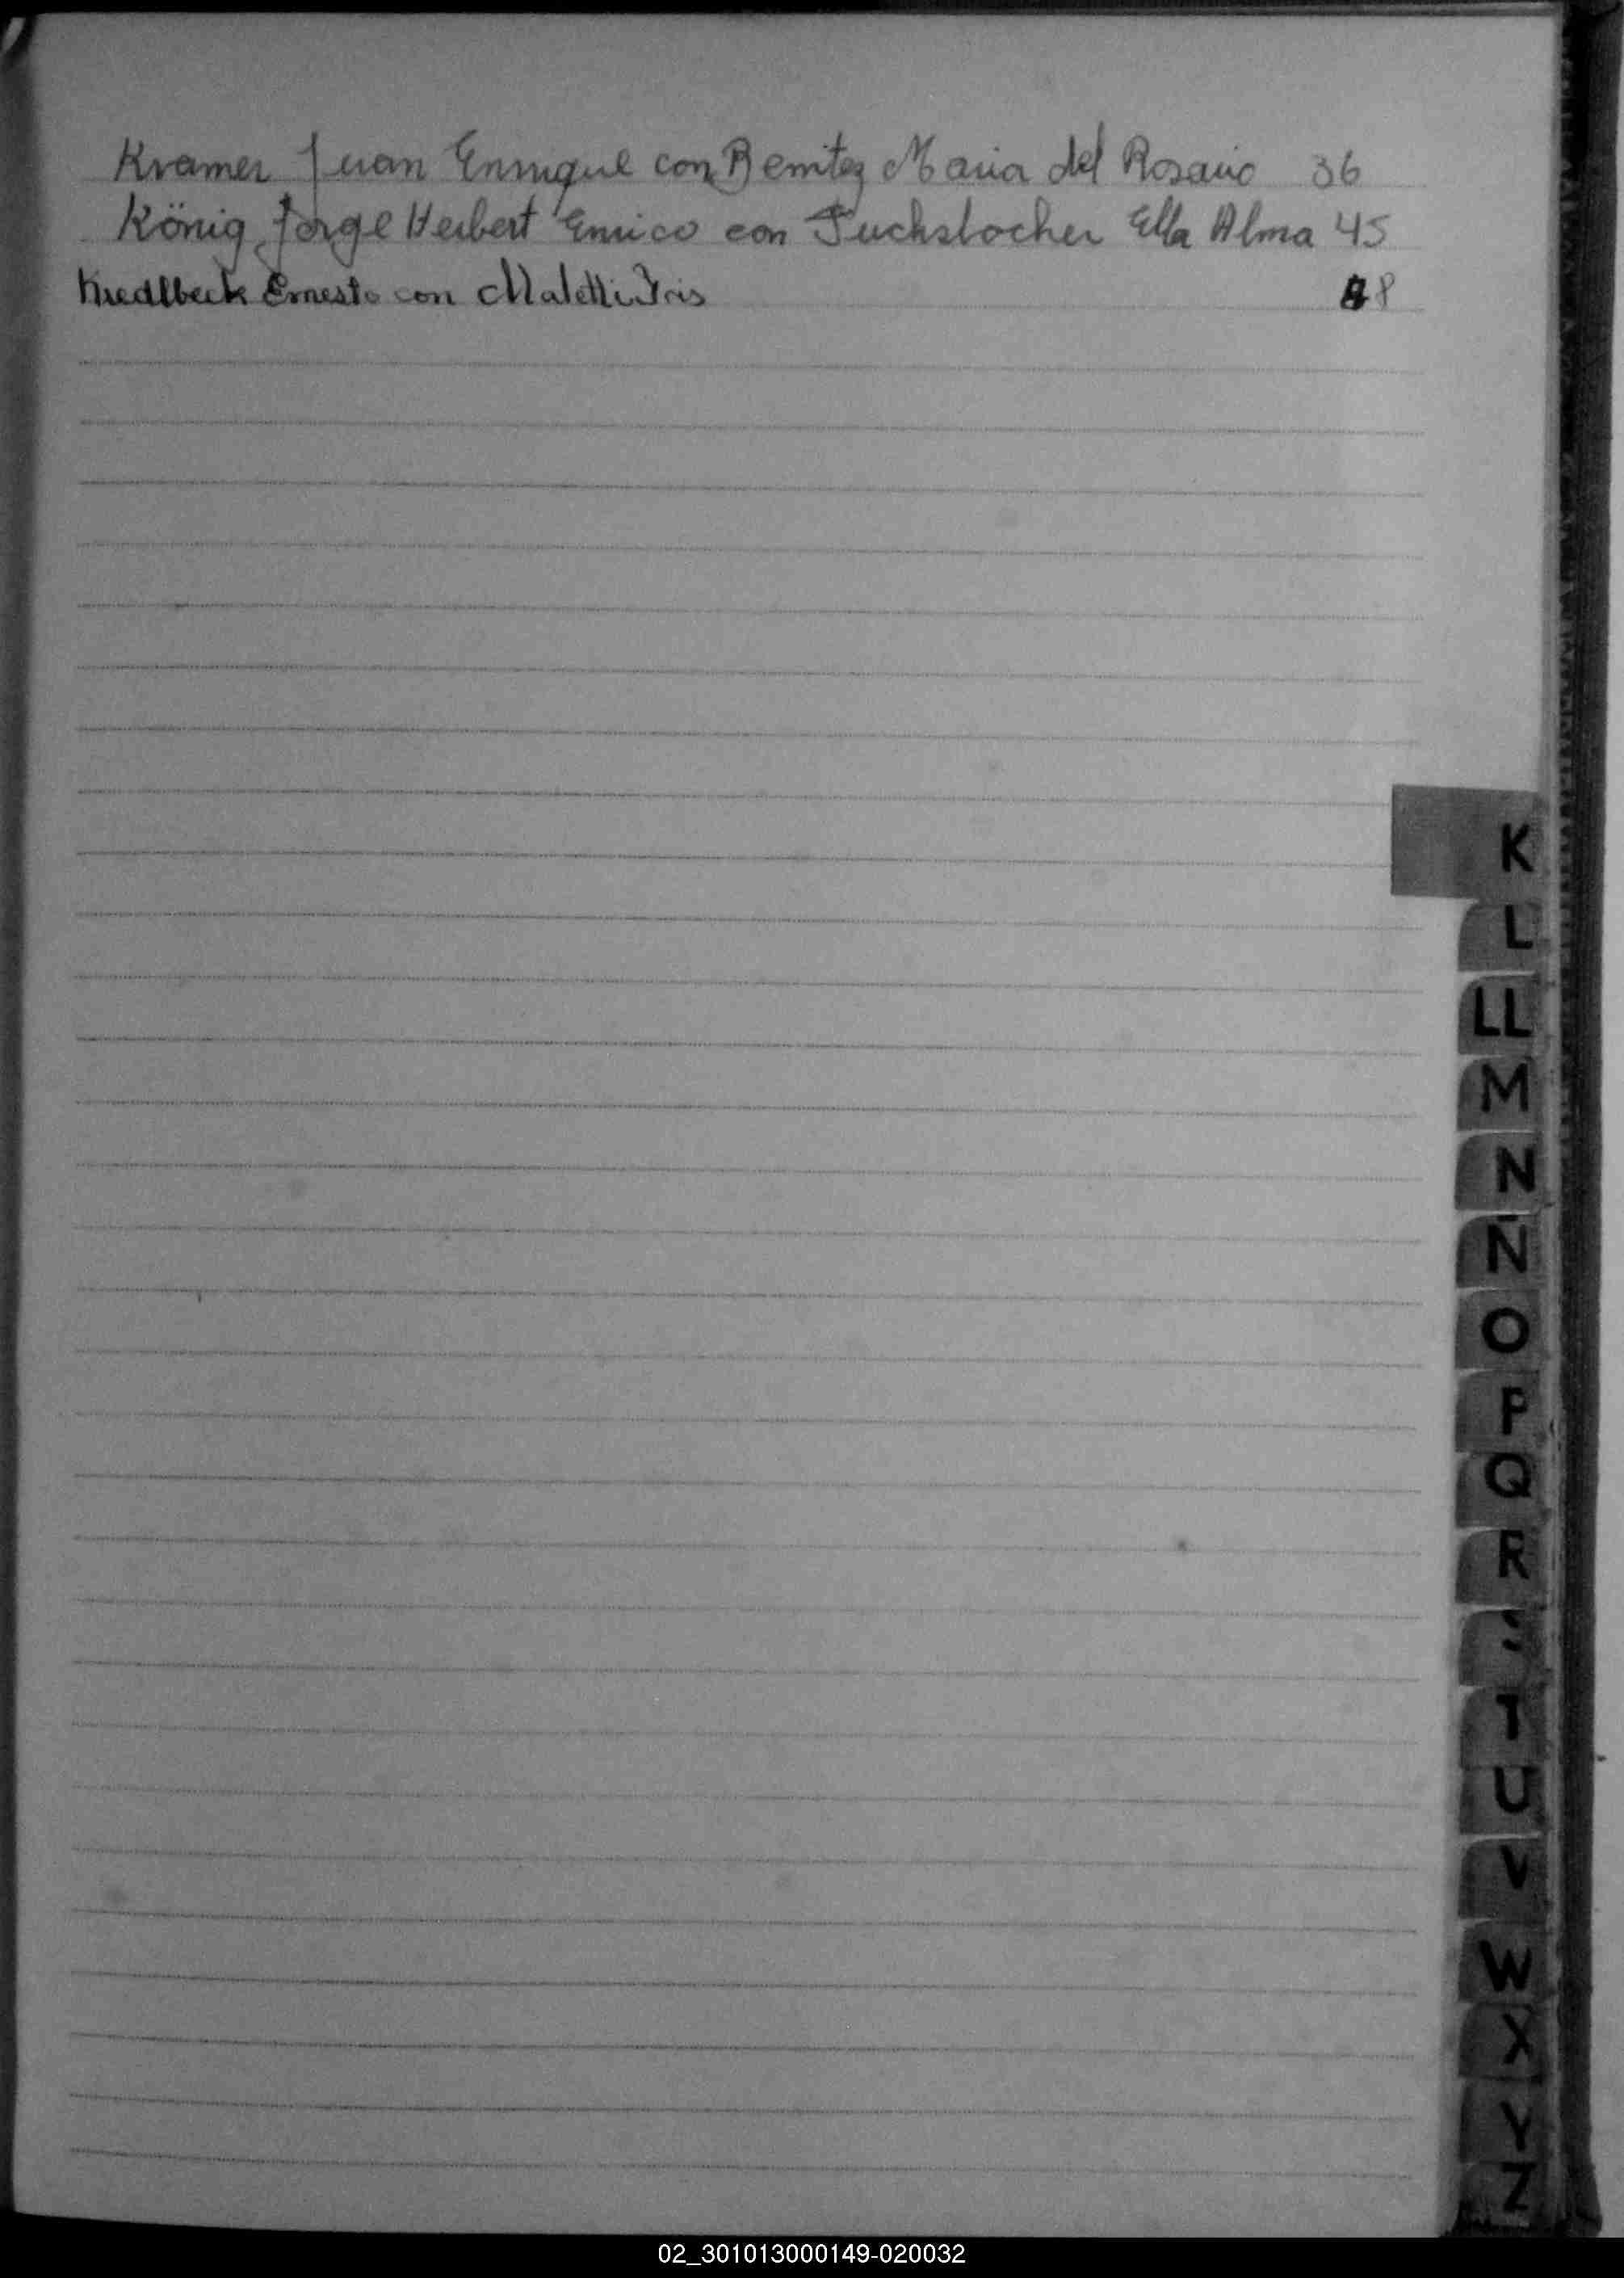 Kramer Juan Enrique con Benitez Maria del Rosario 36
König Jorge Herbert Enrico con Fuchslocher Ella Alma 45
Ernesto con Maletti Iris
K
L
LL
M
N
Ñ
O
P
Q
R
T
U
V
W
X
Y
Z
02_301013000149-020032